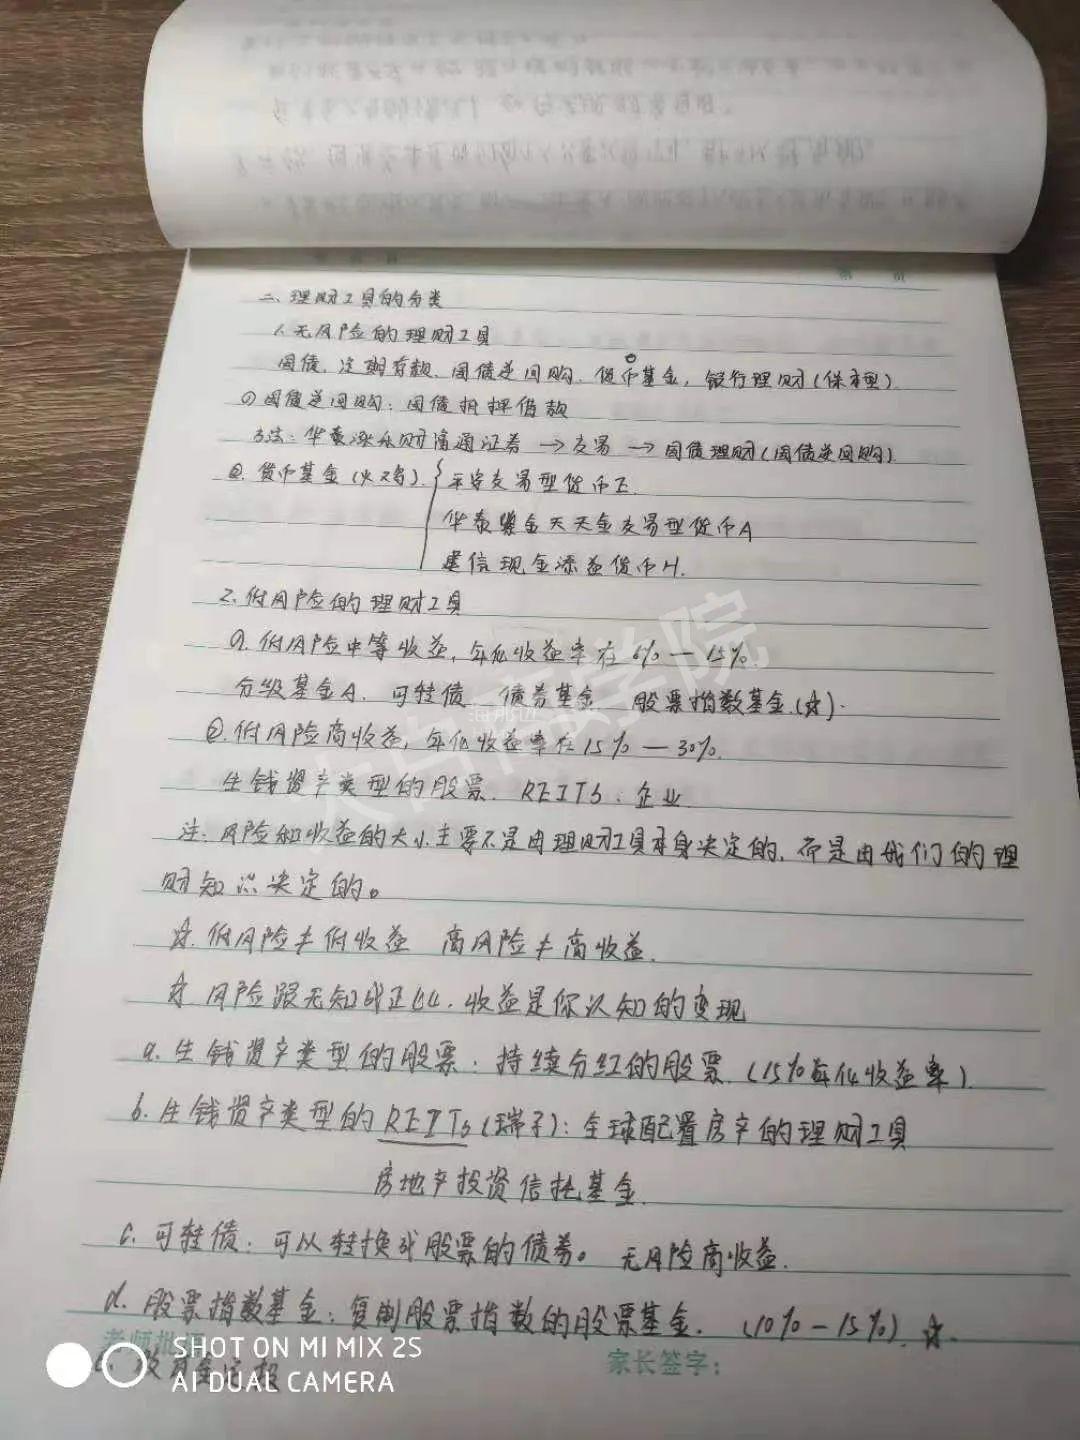 二、理财工具的分类
1.无风险的理财工具
国债、定期存款、国债逆回购、货币基金，银行理财（保本型）
①国债逆回购：国债抵押借款
方法：华泰涨乐财富通证券 → 交易 → 国债理财（国债逆回购）
②.货币基金（火鸡） 平安交易型货币E.
华泰紫金天天金交易型货币A
建信现金添益货币H.
2.低风险的理财工具
①.低风险中等收益，年化收益率在6%—15%.
分级基金A、可转债、债券基金、股票指数基金.(☆).
②.低风险高收益，年化收益率在15%—30%.
生钱资产类型的股票、REITs、企业
注：风险和收益的大小主要不是由理财工具本身决定的，而是由我们的理
财知识决定的。
☆.低风险≠低收益 高风险≠高收益.
☆ 风险跟无知成正比.收益是你认知的变现
a.生钱资产类型的股票：持续分红的股票.(15%年化收益率).
b.生钱资产类型的REITs(瑞子)：全球配置房产的理财工具
房地产投资信托基金.
c.可转债：可以转换成股票的债券。无风险高收益.
d.股票指数基金：复制股票指数的股票基金.(10%-15%).☆.
家长签字：
SHOT ON MI MIX 2S
AI DUAL CAMERA